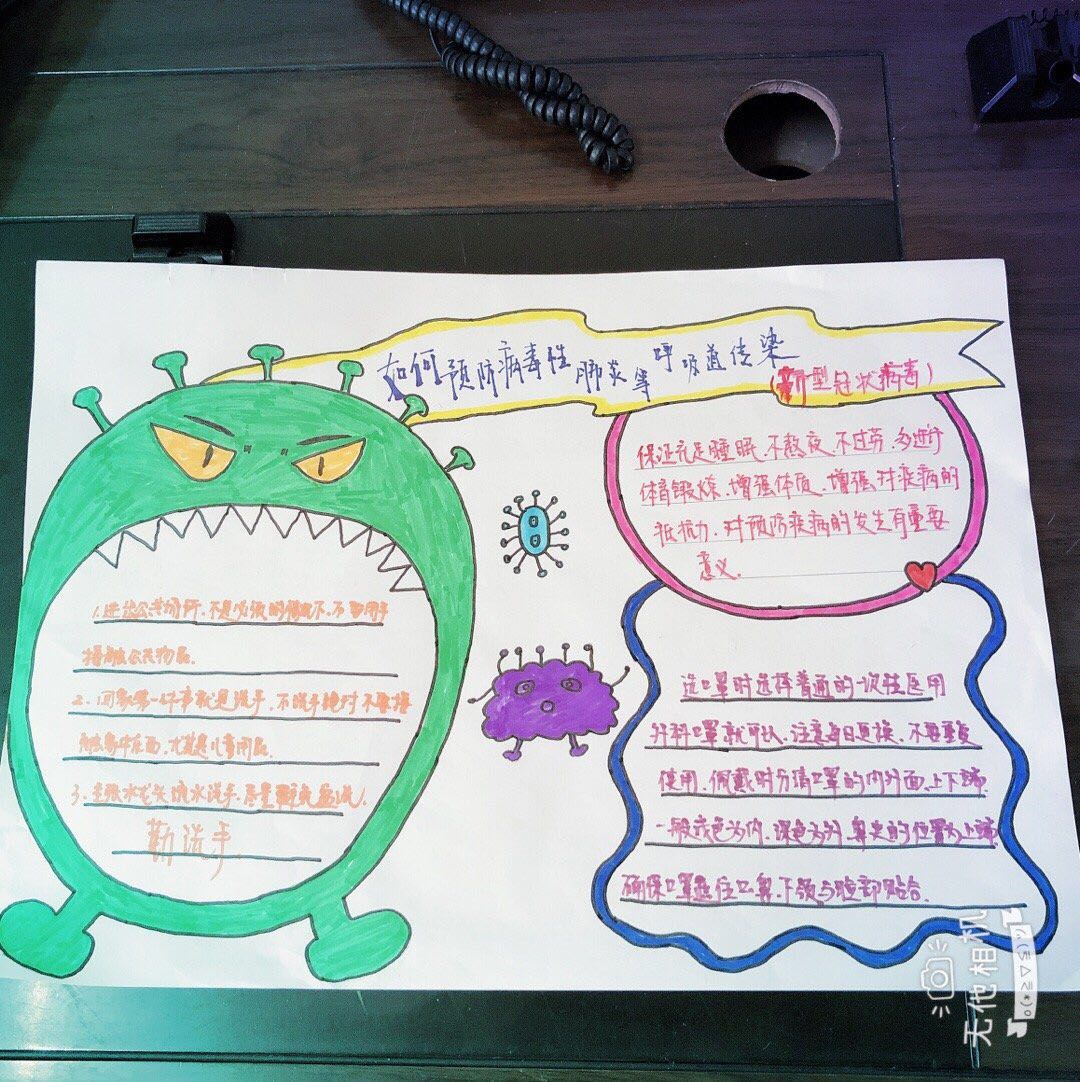 如何预防病毒性肺炎等呼吸道传染
(新型冠状病毒)
保证充足睡眠、不熬夜、不过劳、多进行
体育锻炼、增强体质、增强对疾病的
抵抗力、对预防疾病的发生有重要
意义、
1、进出公共场所、不是必须的情况下、不要用手
接触公共物品、
2、回家第一件事就是洗手、不洗手绝对不要接
触身体、尤其是儿童用品、
3、洗手、尽量
勤洗手
选口罩时选择普通的一次性医用
外科口罩就可以、注意每日更换、不要重复
使用、佩戴时分清口罩的内外面、上下端
一般浅色为内、深色为外、鼻夹的位置为上端
确保口罩罩住口鼻、下颌与脸部贴合、
无他相机